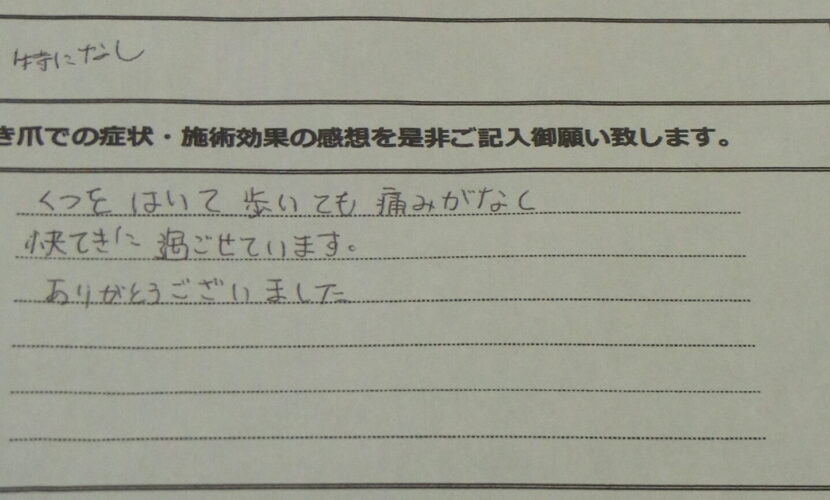 特になし
き爪での症状・施術効果の感想を是非ご記入御願い致します。
くつを はいて 歩いても 痛みがなく
快てきに 過ごせています。
ありがとうございました